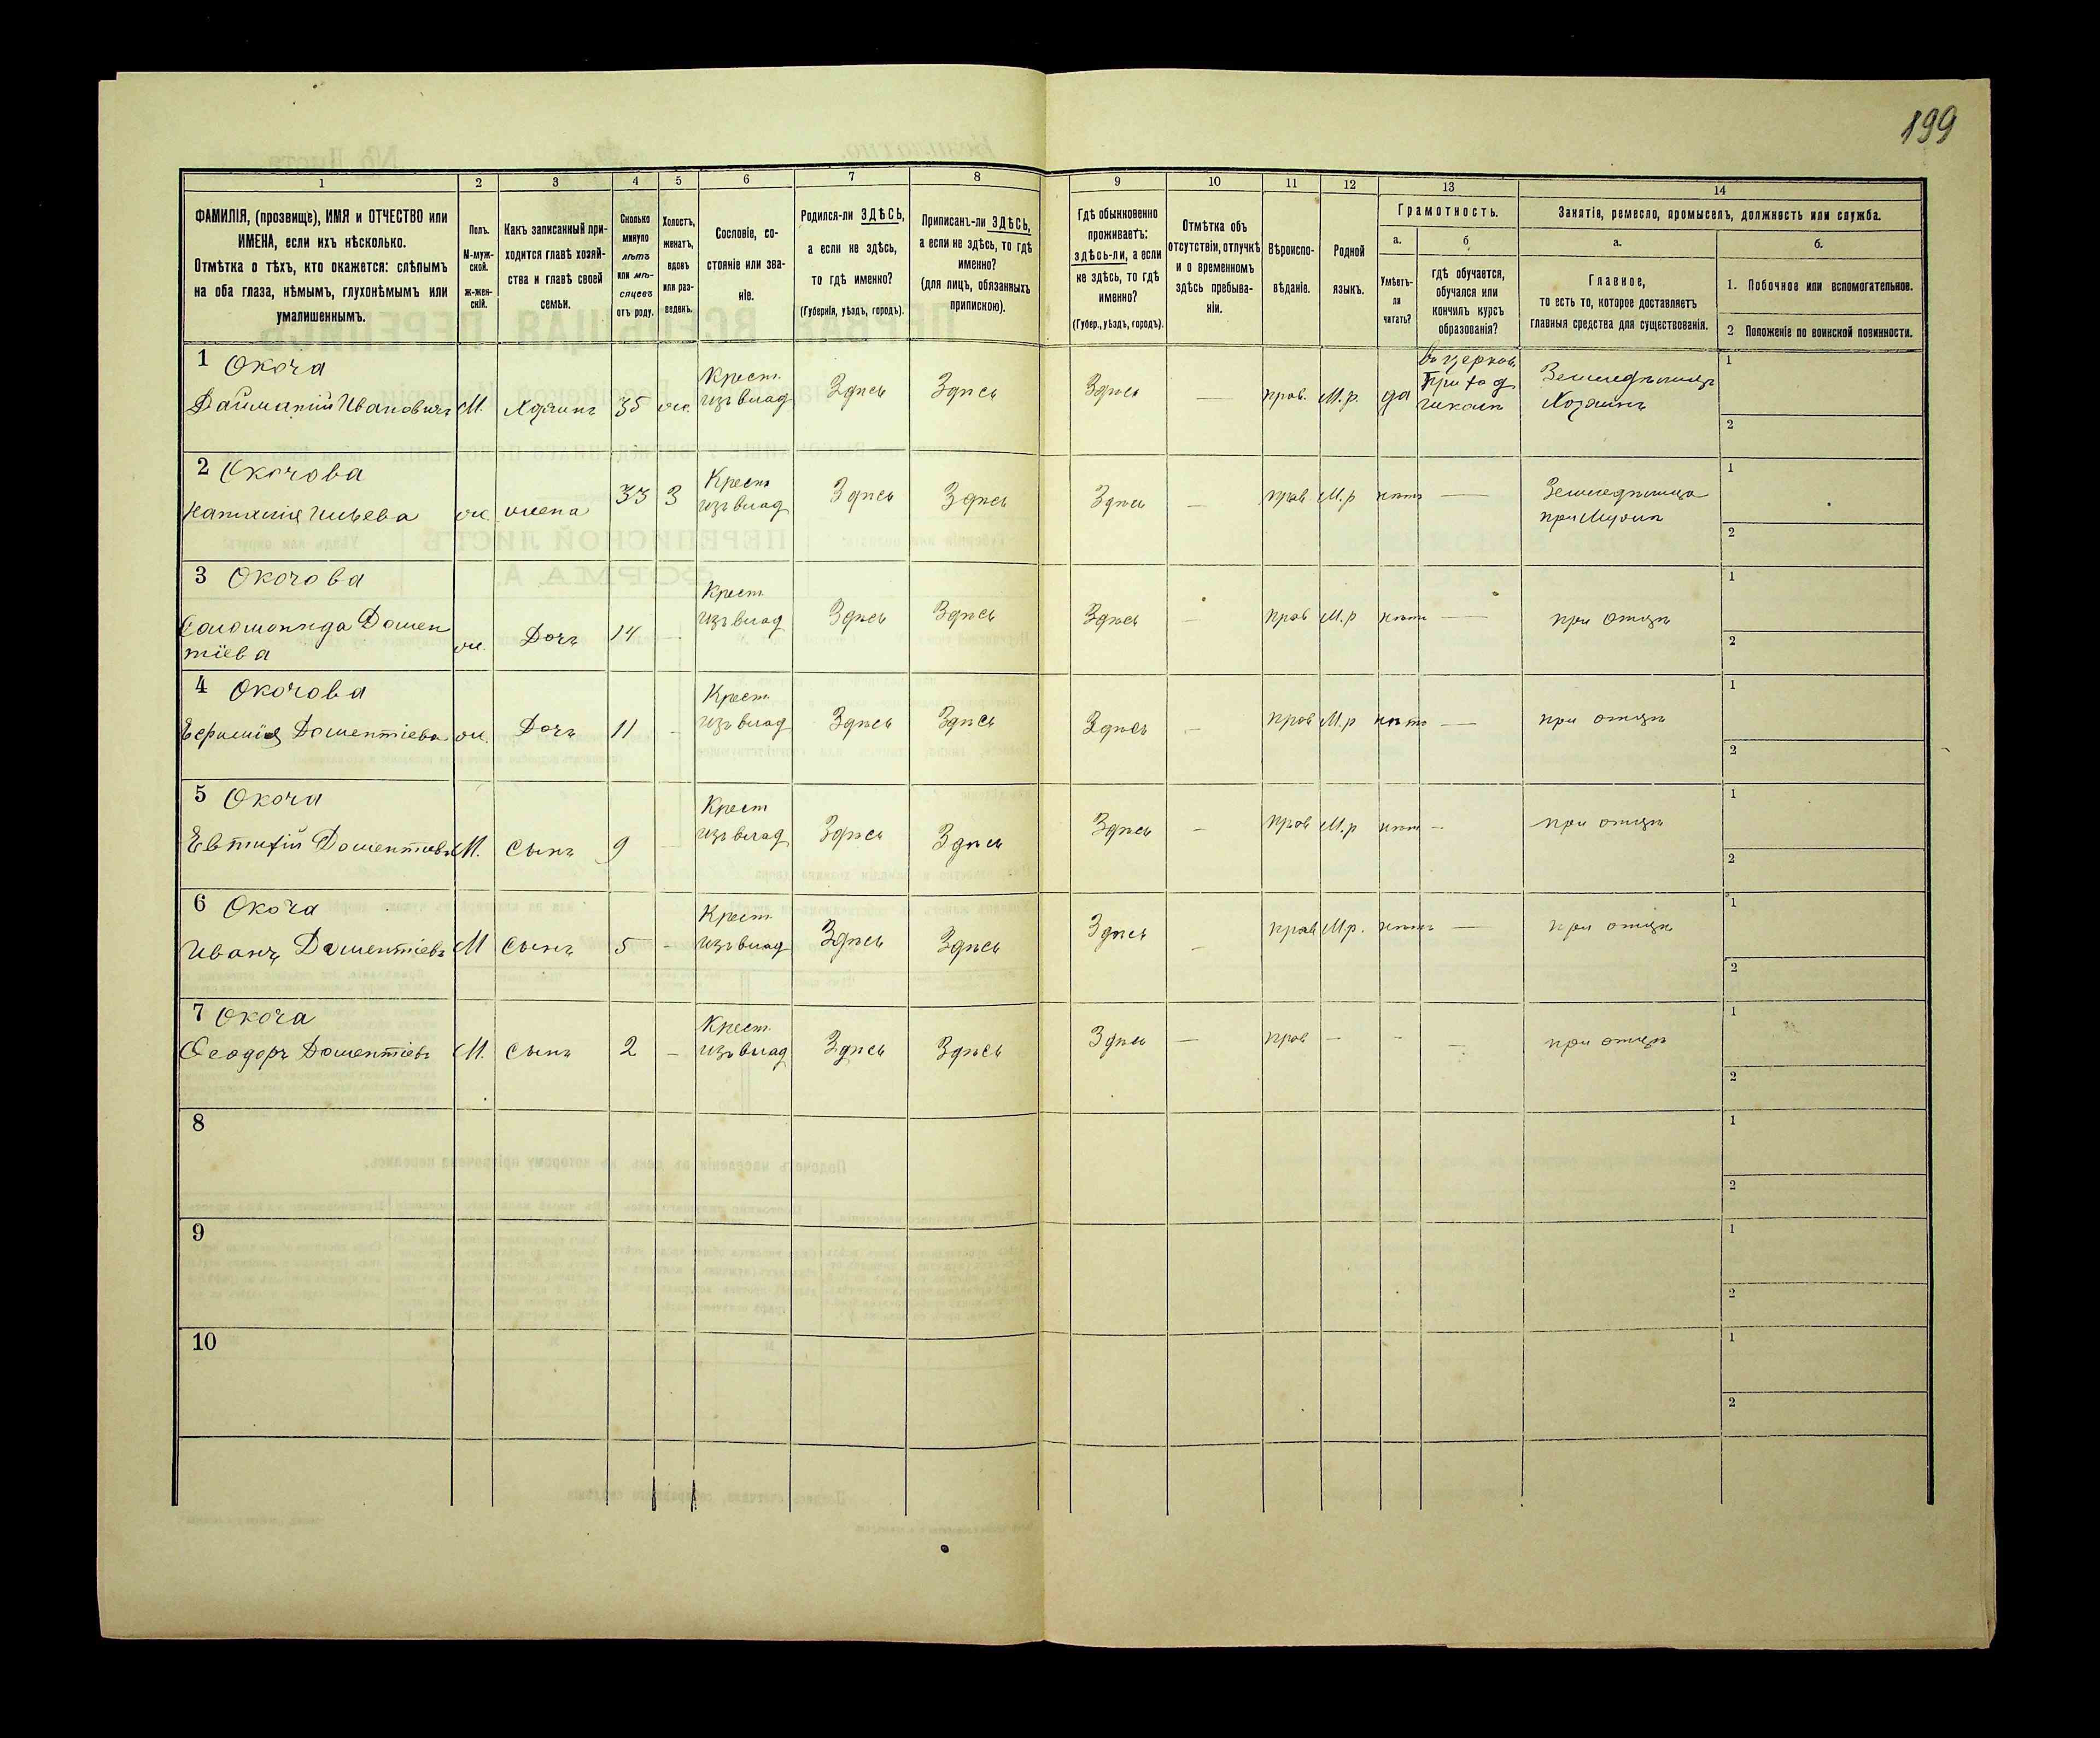 199
1 2 3 4 5 6 7 8 9 10 11 12 13 14
ФАМИЛІЯ, (прозвище), ИМЯ и ОТЧЕСТВО или
ИМЕНА, если ихъ нѣсколько.
Отмѣтка о тѣхъ, кто окажется: слѣпымъ
на оба глаза, нѣмымъ, глухонѣмымъ или
умалишеннымъ.
Полъ.
М-муж-
ской.
ж-жен-
скій.
Какъ записанный при-
ходится главѣ хозяй-
ства и главѣ своей
семьи.
Сколько
минуло
лѣтъ
или мѣ-
сяцевъ
отъ роду.
Холостъ,
женатъ,
вдовъ
или раз-
веденъ.
Сословіе, со-
стояніе или зва-
ніе.
Родился-ли ЗДѢСЬ,
а если не здѣсь,
то гдѣ именно?
(Губернія, уѣздъ, городъ).
Приписанъ-ли ЗДѢСЬ,
а если не здѣсь, то гдѣ
именно?
(для лицъ, обязанныхъ
припискою).
Гдѣ обыкновенно
проживаетъ:
здѣсь-ли, а если
не здѣсь, то гдѣ
именно?
(Губер., уѣздъ, городъ).
Отмѣтка объ
отсутствіи, отлучкѣ
и о временномъ
здѣсь пребыва-
ніи.
Вѣроиспо-
вѣданіе.
Родной
языкъ.
Грамотность.
а.
Умѣетъ-
ли
читать?
б
гдѣ обучается,
обучался или
кончилъ курсъ
образованія?
Занятія, ремесло, промыселъ, должность или служба.
а.
Главное,
то есть то, которое доставляетъ
главныя средства для существованія.
б.
1. Побочное или вспомогательное.
2 Положеніе по воинской повинности.
1 Окоча
Ивановичъ М. 35 ж.
Крест.
изъ влад
Здѣсь Здѣсь Здѣсь — прав. М.р. да
въ церков.
приход
школѣ
Хозяинъ
1
2
2 Окочова
ж. жена 33 З
Крест
изъ влад
Здѣсь Здѣсь Здѣсь — прав М.р нѣтъ —
при Мужѣ
1
2
3 Окочова
Соломонида Домен
тіева
ж. Дочь 14 -
Крест
изъ влад
Здѣсь Здѣсь Здѣсь — прав М.р нѣтъ — при отцѣ
1
2
4 Окочова
Доментіева ж. Дочь 11 -
Крест.
изъ влад
Здѣсь Здѣсь Здѣсь — прав М.р нѣтъ — при отцѣ
1
2
5 Окоча
Евтихій Доментіевъ М. Сынъ 9 -
Крест
изъ влад
Здѣсь Здѣсь Здѣсь — прав М.р нѣтъ — при отцѣ
1
2
6 Окоча
Иванъ Доментіевъ М Сынъ 5 -
Крест.
изъ влад
Здѣсь Здѣсь Здѣсь — прав М.р. нѣтъ — при отцѣ
1
2
7 Окоча
Ѳеодоръ Доментіевъ М. Сынъ 2 -
Крест.
изъ влад
Здѣсь Здѣсь Здѣсь — прав — - — при отцѣ
1
2
8
1
2
9
1
2
10
1
2